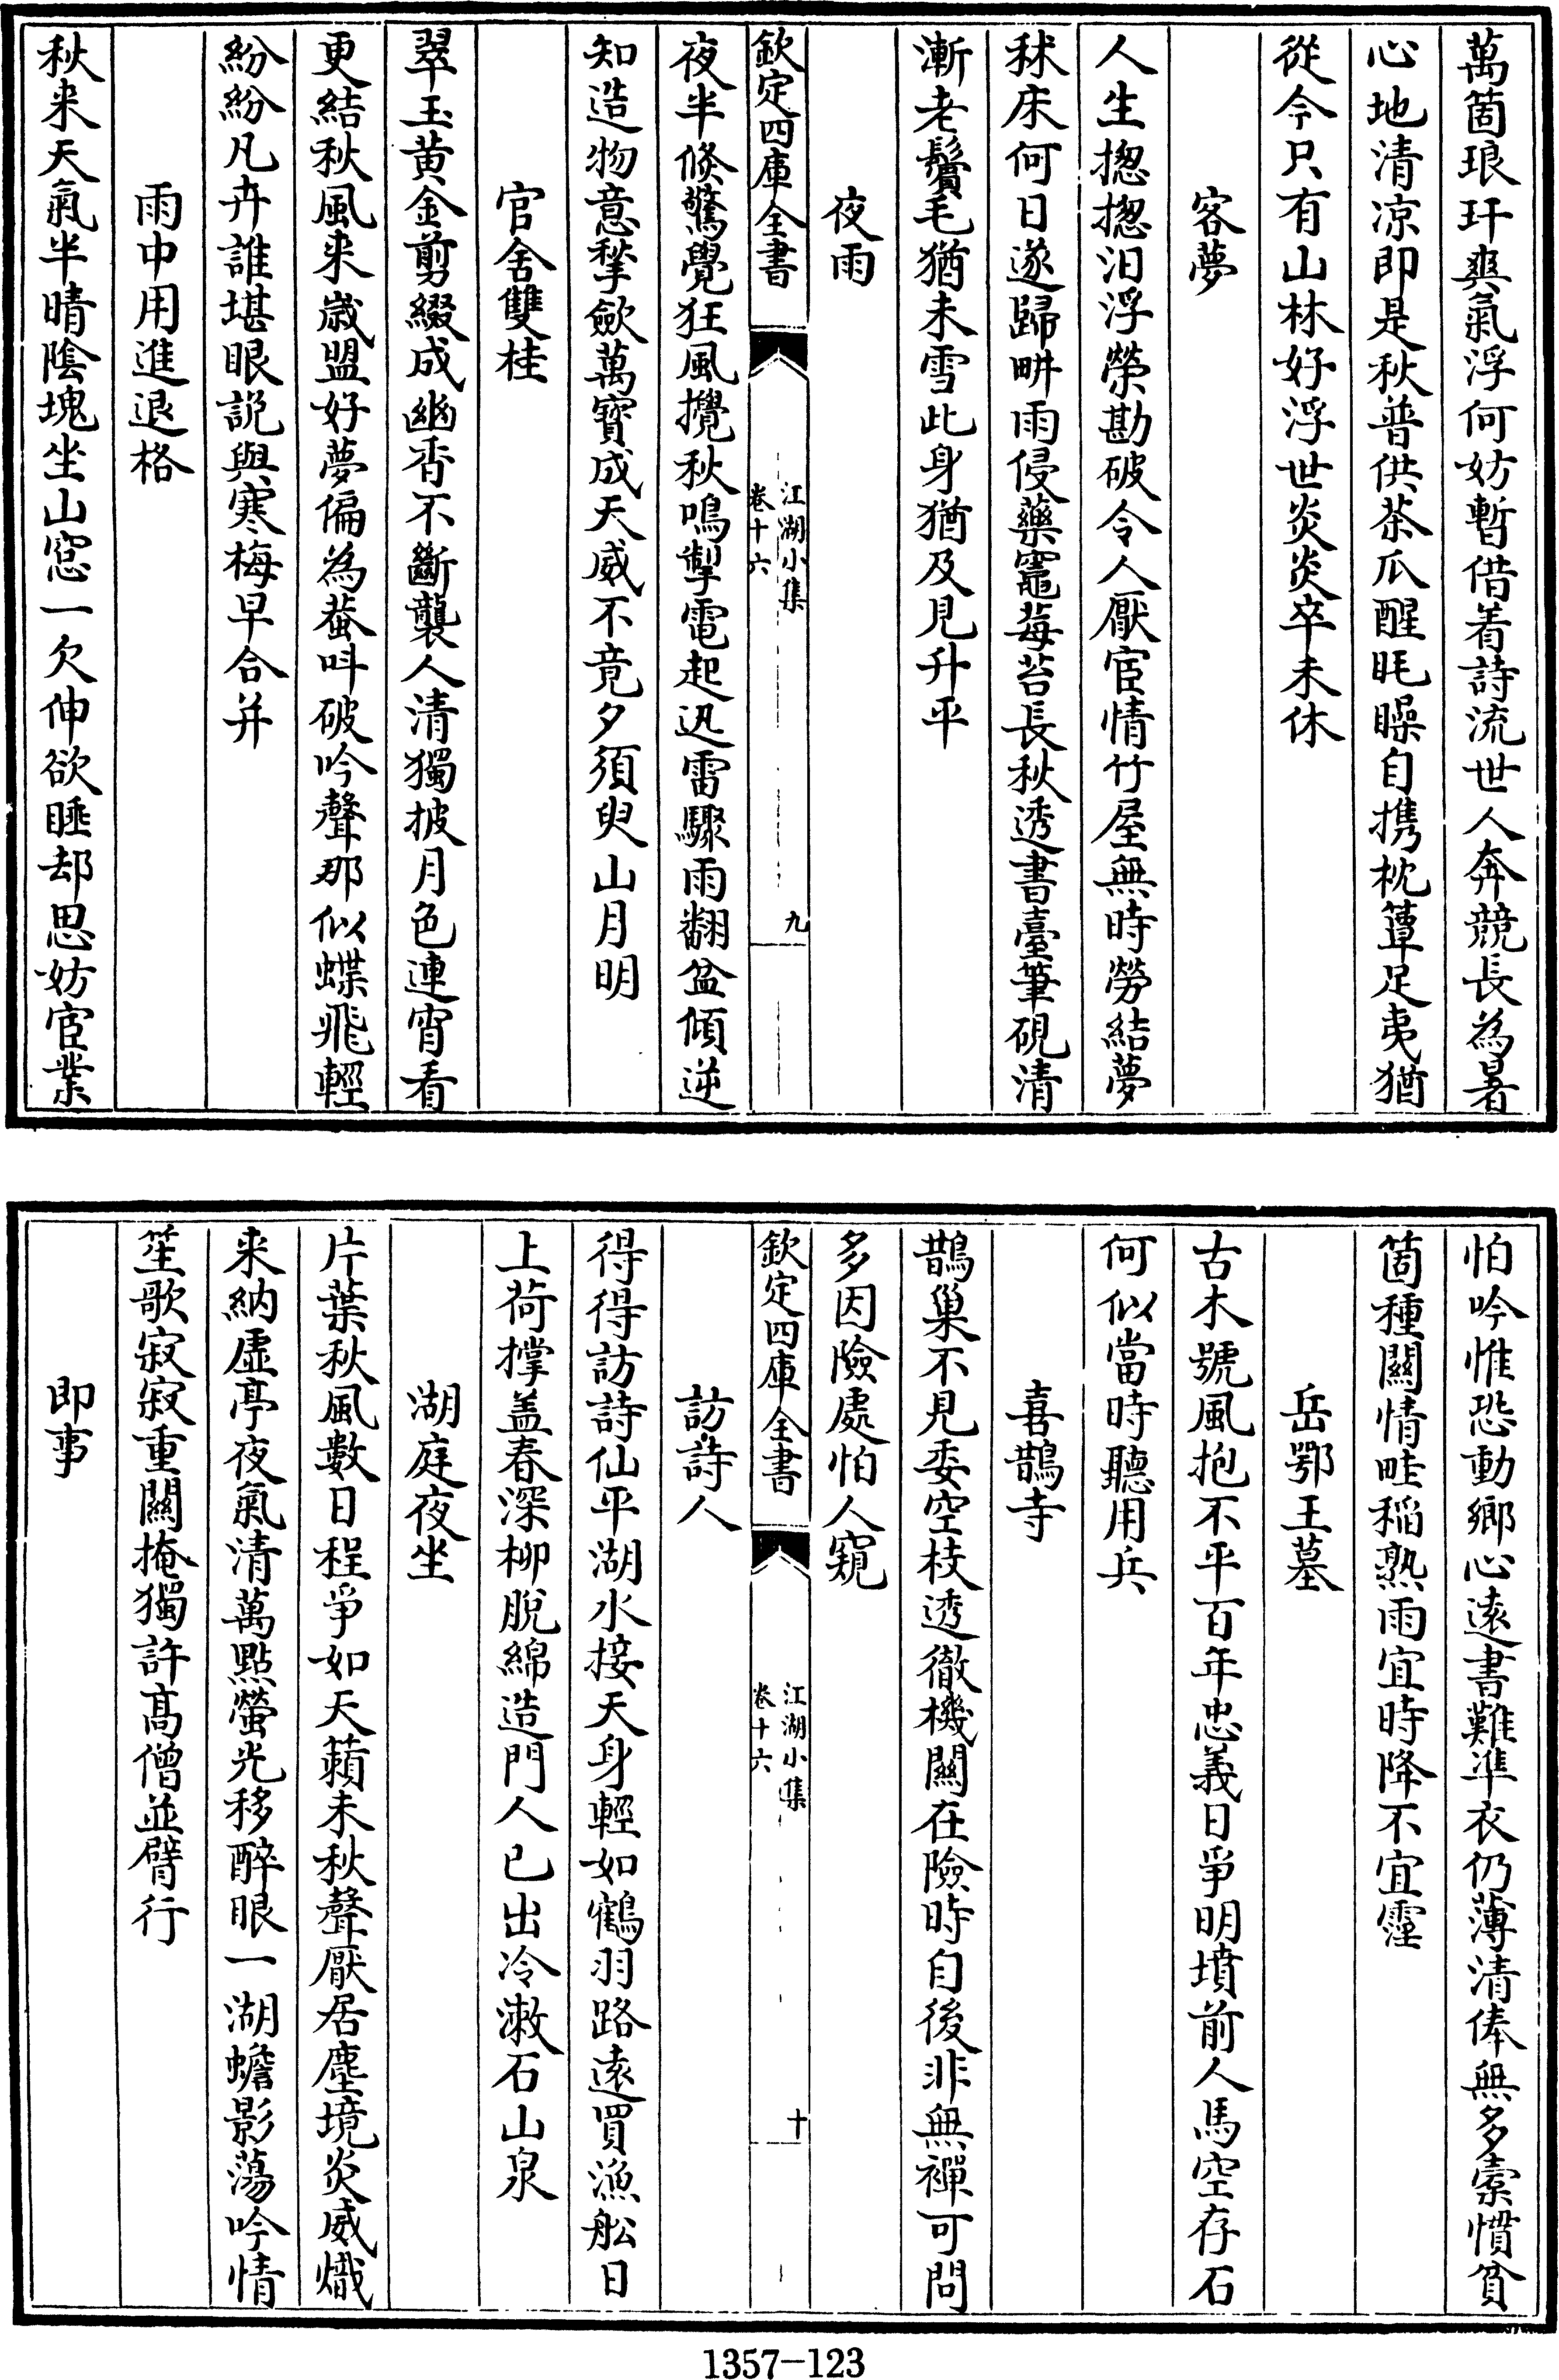 萬箇琅玕爽氣浮何妨暫借着詩流世人奔競長為暑
心地清凉即是秋普供茶瓜醒眊矂自携枕簟足夷猶
從今只有山林好浮世炎炎卒未休
客夢
人生揔揔汨浮榮勘破令人厭宦情竹屋無時勞結夢
秫床何日遂歸畊雨侵藥竈莓苔長秋透書臺筆硯清
漸老鬢毛猶未雪此身猶及見升平
夜雨
欽定四庫全書
江湖小集
卷十六
九
夜半倐驚覺狂風攪秋鳴掣電起迅雷驟雨翻盆傾逆
知造物意揫歛萬寶成天威不竟夕須臾山月明
官舍雙桂
翠玉黄金剪綴成幽香不斷襲人清獨披月色連宵看
更結秋風来歲盟好夢偏為蛩呌破吟聲那似蝶飛輕
紛紛凡卉誰堪眼説與寒梅早合并
雨中用進退格
秋来天氣半晴陰塊坐山窓一欠伸欲睡却思妨宦業
怕吟惟恐動鄉心逺書難凖衣仍薄清俸無多槖慣貧
箇種關情畦稻熟雨宜時降不宜霪
岳鄂王墓
古木號風抱不平百年忠義日爭明墳前人馬空存石
何似當時聽用兵
喜鵲寺
鵲巢不見委空枝透徹機關在險時自後非無禪可問
多因險處怕人窺
欽定四庫全書
江湖小集
卷十六
十
訪詩人
得得訪詩仙平湖水接天身輕如鶴羽路逺買漁舩日
上荷撐盖春深柳脱綿造門人已出冷漱石山泉
湖庭夜坐
片葉秋風數日程爭如天籟未秋聲厭居塵境炎威熾
来納虚亭夜氣清萬點螢光移醉眼一湖蟾影蕩吟情
笙歌寂寂重關掩獨許髙僧並臂行
即事
1357—123